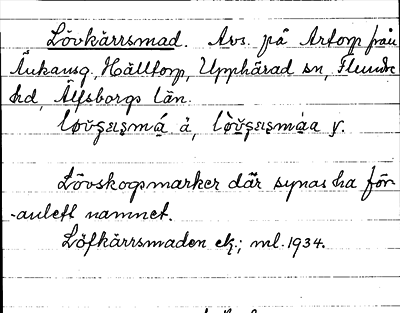 Lövkärrsmad. Avs. på Artorp från
Änkansg., Hälltorp, Upphärad sn, Flundre
hd, Älfsborgs län.
å, y.
Lövskogsmarker där synas ha för-
anlett namnet.
Löfkärrsmaden ek.; ml. 1934.